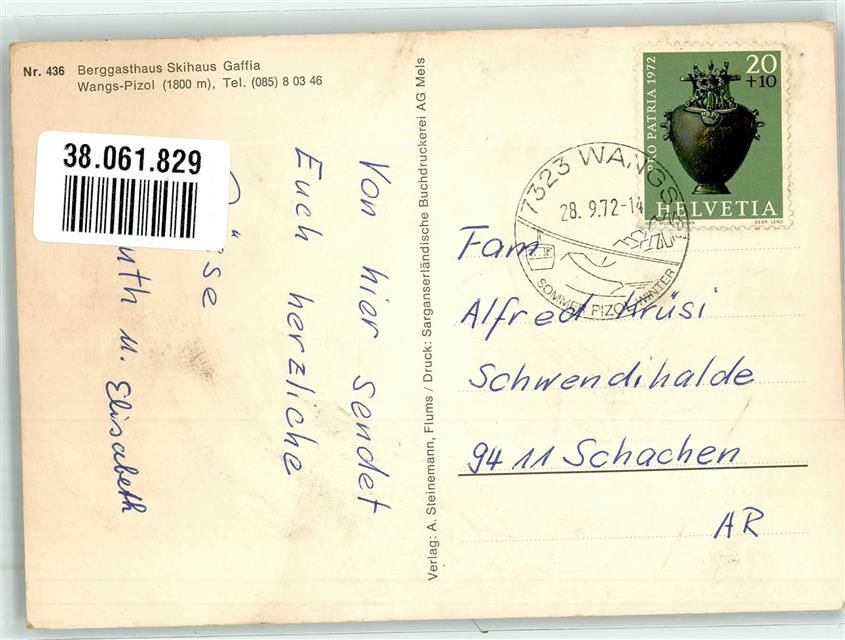 Nr. 436 Berggasthaus Skihaus Gaffia
Wangs-Pizol (1800 m), Tel. (085) 8 03 46
38.061.829
Von hier sendet
Euch herzliche
u. Elisabeth
Verlag: A. Steinemann, Flums / Druck: Sarganserländische Buchdruckerei AG Mels
PRO PATRIA 1972
20
+10
HELVETIA
GEBR. LENZ
7323 WANGS
28.9.72-14
SOMMER PIZOL WINTER
Fam
Alfred Krüsi
Schwendihalde
9411 Schachen
AR